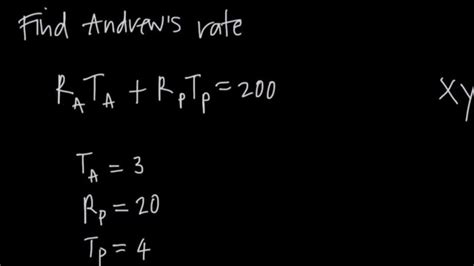 Find Andrew's rate
R_A T_A + R_P T_P = 200
xy
T_A = 3
R_P = 20
T_P = 4